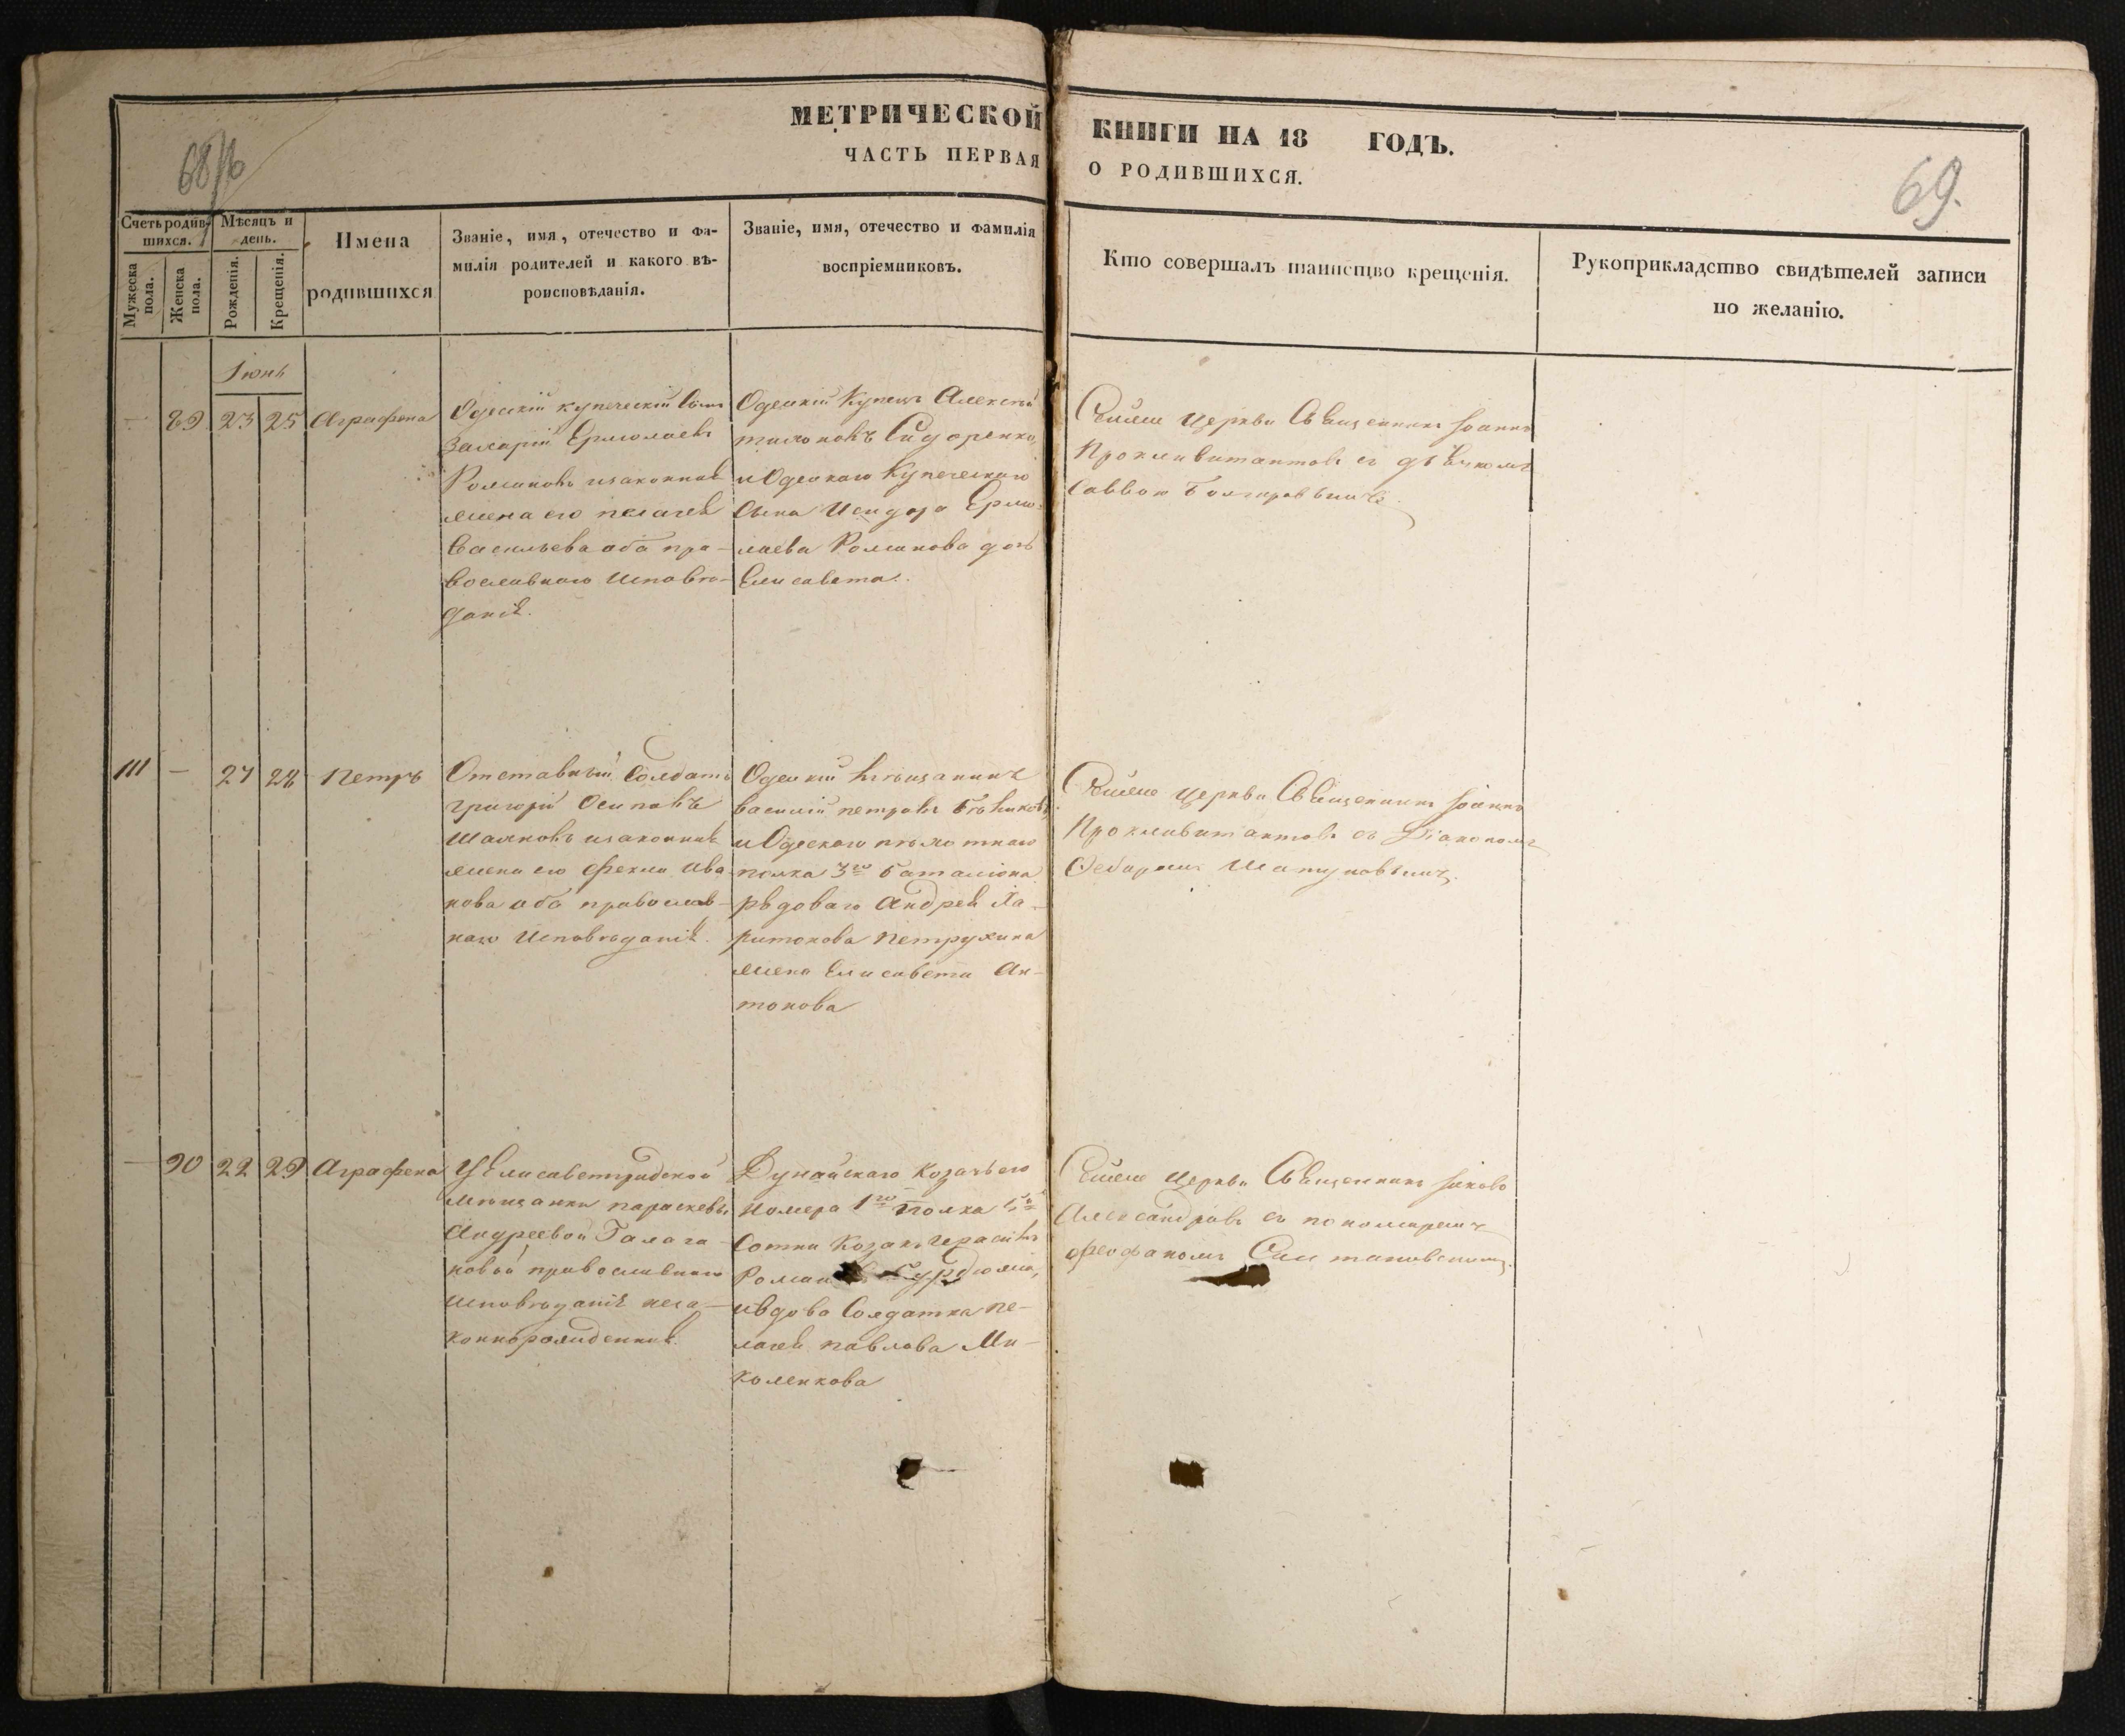 МЕТРИЧЕСКОЙ КНИГИ НА 18 ГОДЪ.
ЧАСТЬ ПЕРВАЯ О РОДИВШИХСЯ.
69.
Счетъ родив-
шихся.
Мужеска пола.
Женска пола.
Мѣсяцъ и
день.
Рожденія.
Крещенія.
Имена
родившихся
Званіе, имя, отечество и фа-
милія родителей и какого вѣ-
роисповѣданія.
Званіе, имя, отечество и фамилія
воспріемниковъ.
Кто совершалъ таинство крещенія.
Рукоприкладство свидѣтелей записи
по желанію.
Іюнь
— 89 23 25 Аграфена
Одескій купеческій сынъ
Захарій Ермолаевъ
Романовъ изаконная
жена его пелагея
Васильева оба пра-
вославнаго исповѣ-
данія.
Одескій Купецъ Алексѣй
Сидоренко,
и Одескаго Купеческаго
сына Исидора Ермо-
лаева Романова дочь
Елисавета.
Сейже Церкви Священникъ Іоаннъ
съ дьячкомъ
Саввою
111 — 27 28 Петръ
Отставный Солдатъ
григорій Осиповъ
изаконная
жена его фекла Ива
нова оба православ-
наго исповѣданія.
Одескій мѣщанинъ
василій петровъ
и Одескаго пѣхотнаго
полка 3го баталіона
рядоваго Андрея Ха-
ритонова Петрухина
жена Елисавета Ан-
тонова
Сейже Церкви Священникъ Іоаннъ
съ Діакономъ
— 90 22 29 Аграфена
У Елисаветградской
мѣщанки параскевы
Андреевой Галага
новой православнаго
исповѣданія неза-
коннорожденная.
Дунайскаго Козачьего
Номера 1го Полка
Сотни Козакъ Герасимъ
ивдова Солдатка пе-
лагея павлова Ми-
коленкова
Сейже Церкви Священникъ Іаковъ
Александровъ съ пономаремъ
феофаномъ